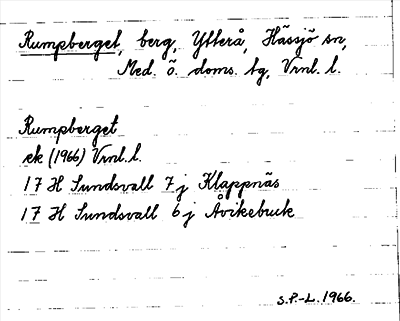 Rumpberget, berg, Ytterå, Hässjö sn,
Med. ö. doms. tg, Vrnl. l.
Rumpberget
ek (1966) Vrnl. l.
17 H Sundsvall 7 j Klappnäs
17 H Sundsvall 6 j Åvikebuck
S.P.-L. 1966.